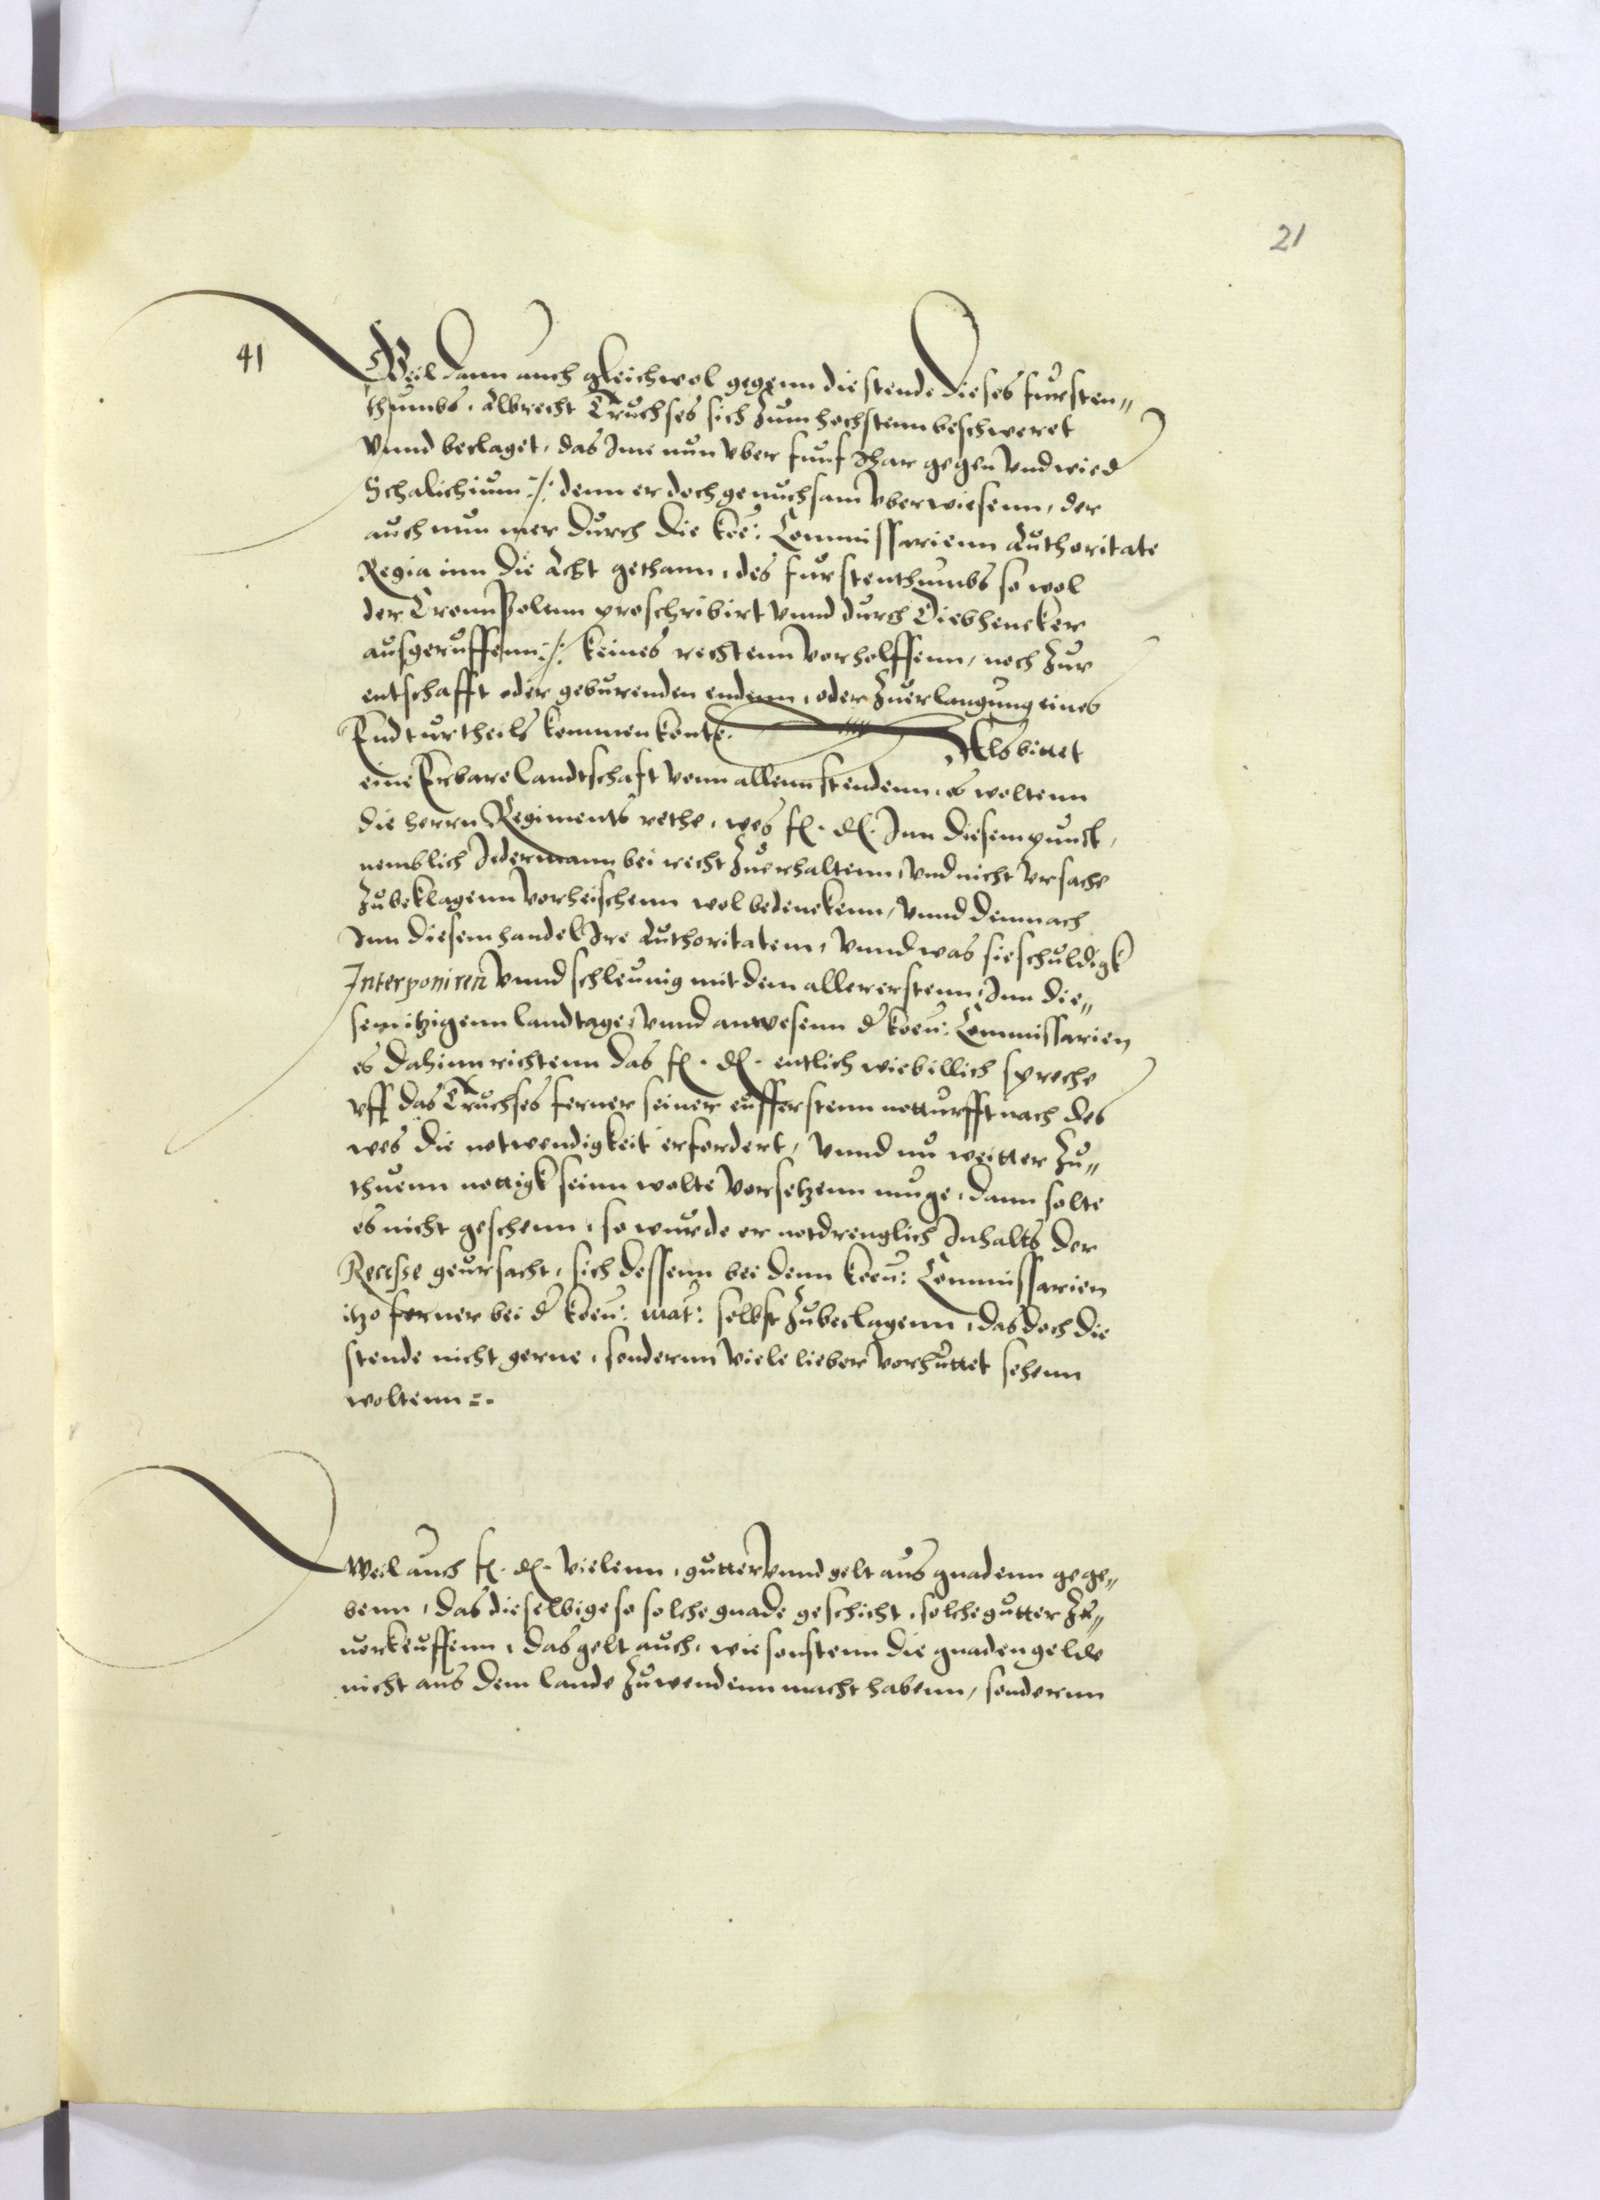 21
41
Weil dann auch gleichwol gegenn die stende dieses fursten„
thumbs, Albrecht Truchses sich zum hochstenn beschweret
vnnd beclaget, das Ime nun vber funf Jhar gegen vnd wied
Schalichium :/: denn er doch genuchsam vberwiesenn, der
auch nun mer durch die koe: Commissarienn Authoritate
Regia inn die Acht gethann, des furstenthumbs so wol
der Cronn Polenn proschribirt vnnd durch Diebhencker
ausgeruffenn :/: keines rechtenn vorholffenn, noch zur
entschafft oder geburenden endenn, oder zuerlangung eines
Endturtheils kommen konte. Als bittet
eine Erbare Landtschaft vonn allenn stendenn, es woltenn
die herrn Regiments rethe, wes f. d. Inn diesem punct,
nemblich Jedermann bei recht zuerhaltenn, vnd nicht vrsache
zubeklagenn vorheischenn wol bedenckenn, vnnd demnach
Inn diesem handel Ire Authoritatem, vnnd was sie schuldigk
Interponiren vnnd schleunig mit dem allererstenn, Inn die„
sem itzigenn landtage, vnnd anwesenn d koen: Commissarien
es dahinn richtenn das f. d. entlich wie billich spreche
vff das Truchses ferner seiner eussersten notturfft nach des
wes die notwendigkeit erfordert, vnnd nu weitter zu„
thuenn nottigk seinn wolte vorsetzenn muge, dann solte
es nicht geschenn, so wurde er notdrenglich Inhalts der
Recesse geursacht, sich dessenn bei denn koen: Commissarien
itzo ferner bei d koen: mat: selbst zubeclagenn, das doch die
stende nicht gerne, sonderun viele lieber vorhuttet sehenn
woltenn =.
Weil auch f. d. vielenn, gutter vnnd gelt aus gnadenn gege„
benn, das dieselbige so solche gnade geschicht, solche gutter zu„
uerkeuffenn, das gelt auch, wie sonstenn die gnadengelde
nicht aus dem lande zuwendenn macht habenn, sonderun